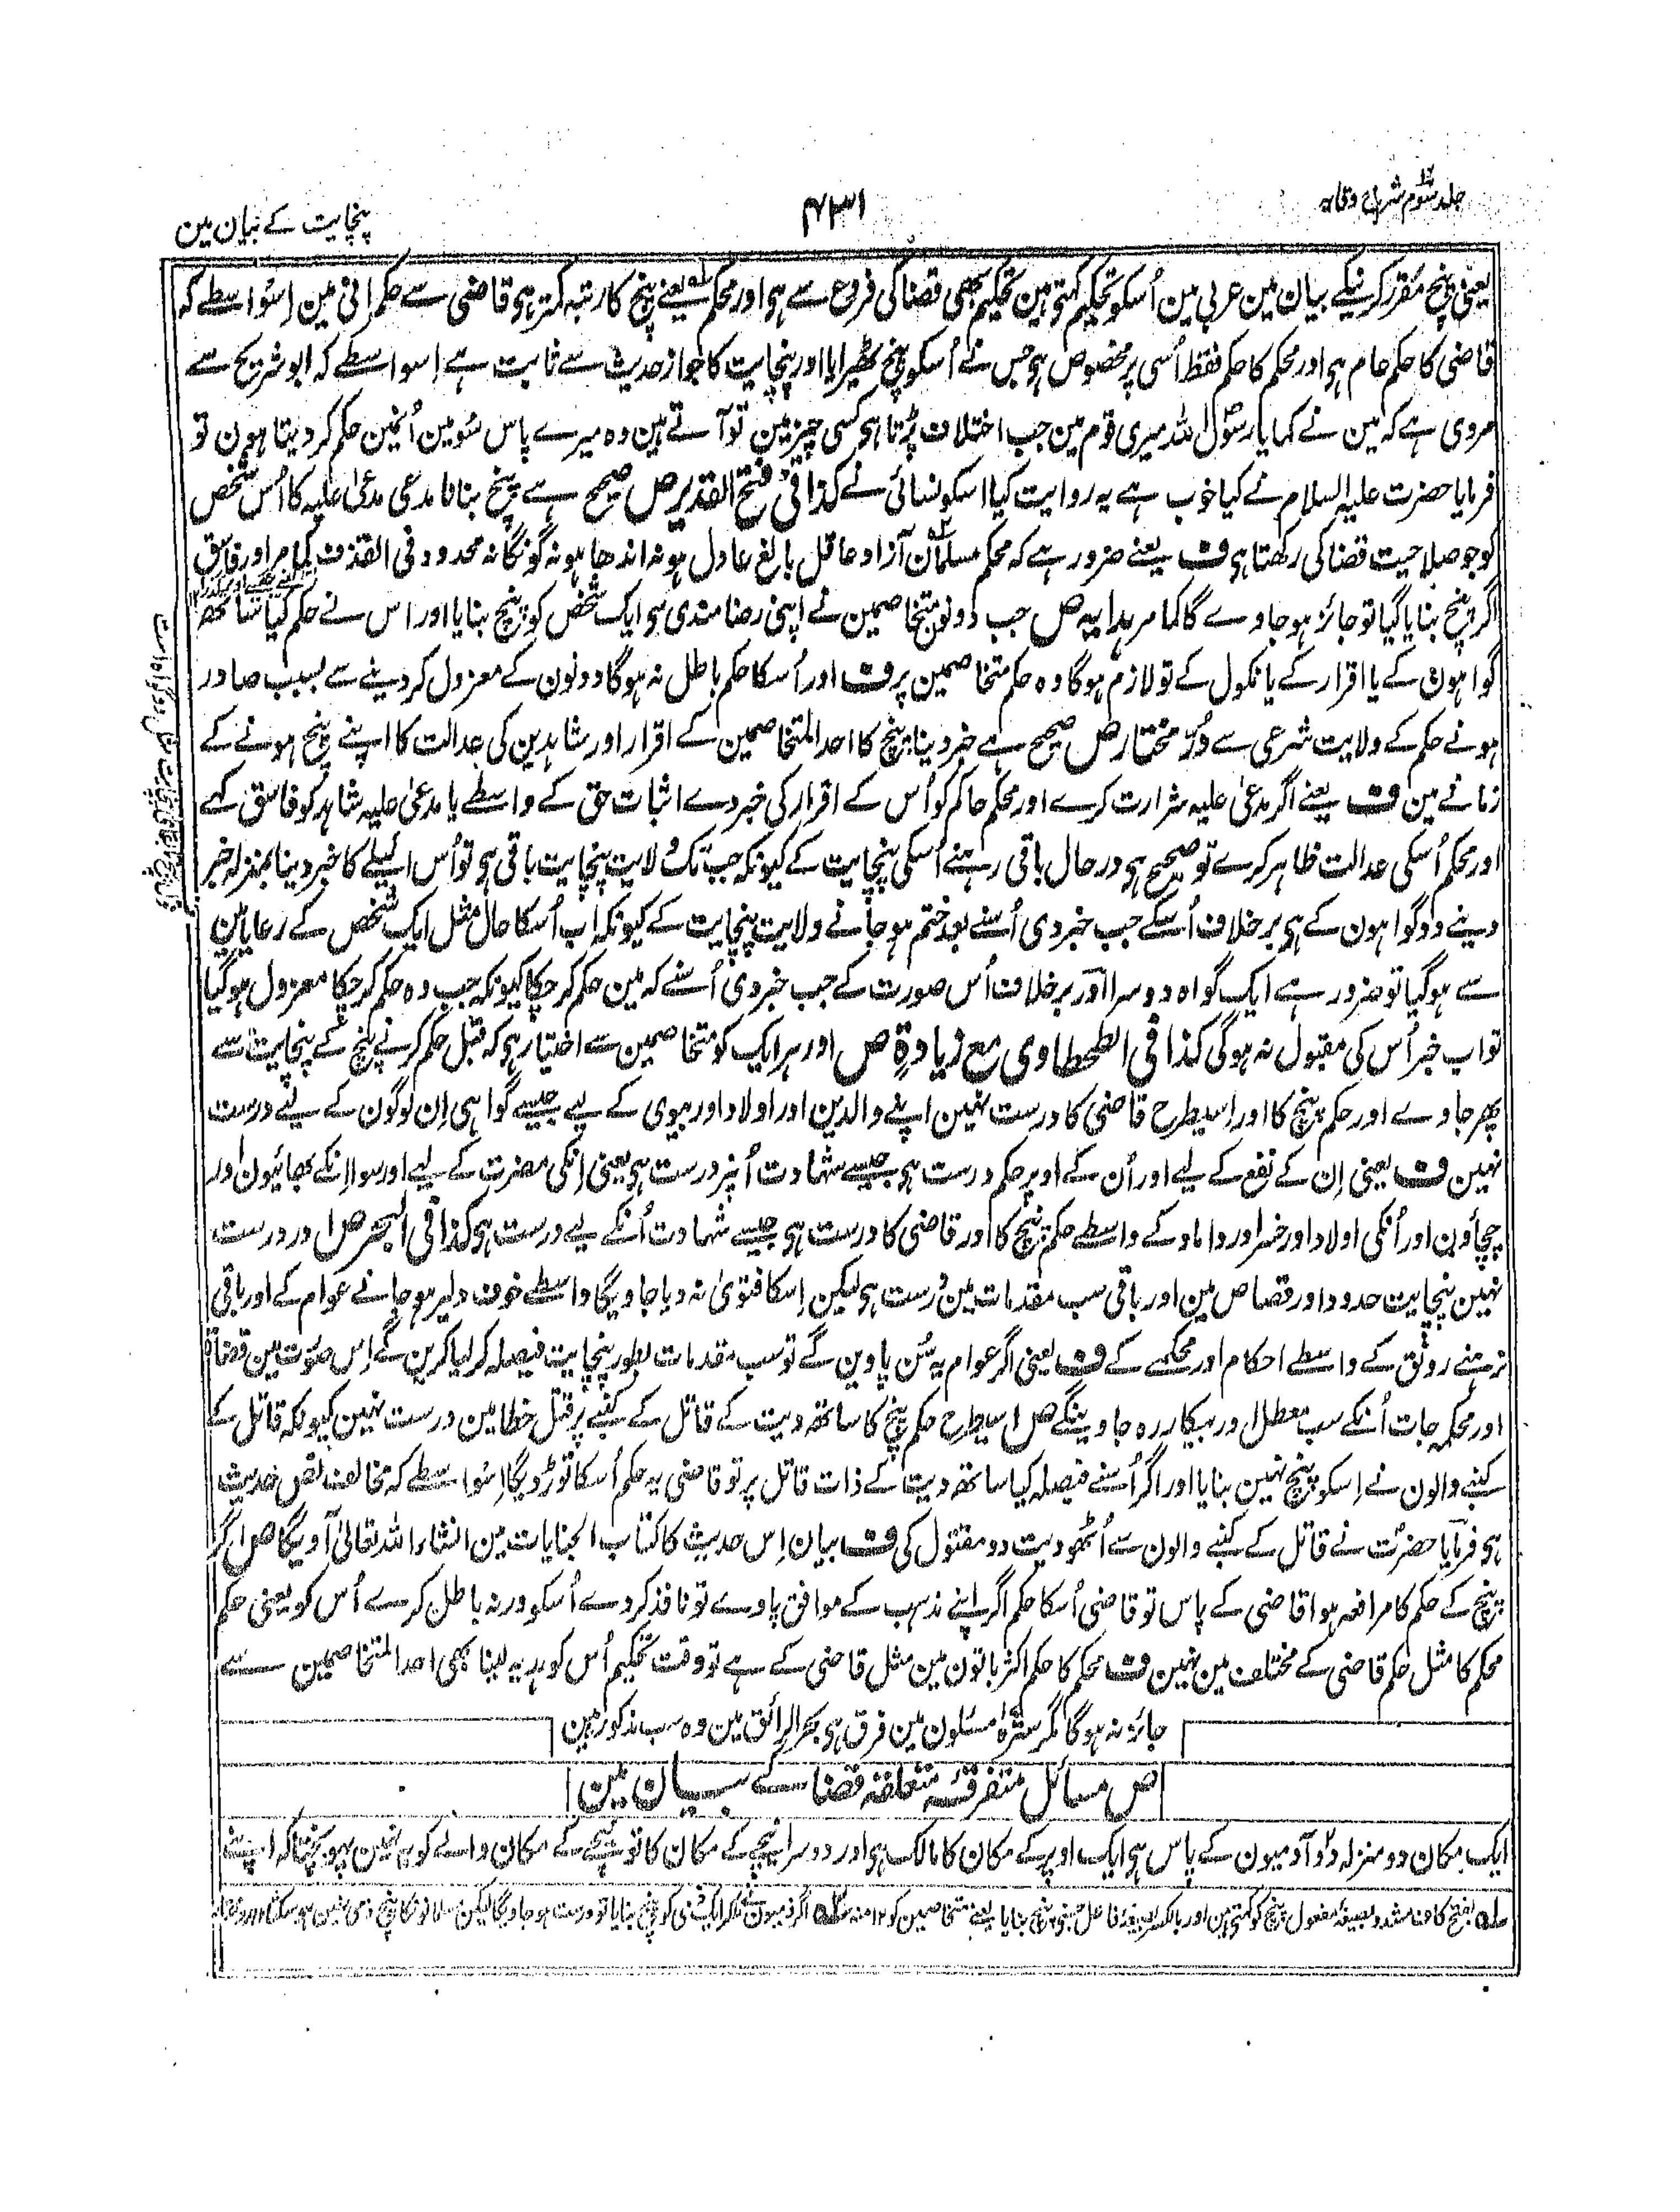 جلد سوم شرح وقایہ
۴۳۱
پنچایت کے بیان مین
یعنی پنچ مقرر کرنیکے بیان مین عربی مین اُسکو تحکیم کہتے ہین تحکیم بھی قضا کی فروع سے ہی اور محکم یعنے پنچ کا رتبہ کمتر ہی قاضی سے حکمرانی مین اِسواسطے کہ
قاضی کا حکم عام ہی اور محکم کا حکم فقط اُسی پر مخصوص ہی جس نے اُسکو پنچ ٹھیرایا اور پنچایت کا جواز حدیث سے ثابت ہے اِسواسطے کہ ابو شریح سے
مروی ہے کہ مین نے کہا یا رسول اللہ میری قوم مین جب اختلاف پڑتا ہی کسی چیز مین تو آتے ہین وہ میرے پاس سو مین اُنمین حکم کر دیتا ہون تو
فرمایا حضرت علیہ السلام نے کیا خوب ہے یہ روایت کیا اسکو نسائی نے کذا فی فتح القدیر ص صحیح ہے پنچ بنانا مدعی مدعیٰ علیہ کا اُس شخص
کو جو صلاحیت قضا کی رکھتا ہی ف یعنے ضرور ہے کہ محکم مسلمان آزاد عاقل بالغ عادل ہو نہ اندھا ہو نہ گونگا نہ محدود فی القذف کما مر اور فاسق
اگر پنچ بنایا گیا تو جائز ہو جاوے گا کما مر ہدایہ ص جب دونون متخاصمین نے اپنی رضامندی سے ایک شخص کو پنچ بنایا اور اس نے حکم کیا ساتھ
گواہون کے یا اقرار کے یا نکول کے تو لازم ہوگا وہ حکم متخاصمین پر ف اور اُسکا حکم باطل نہ ہوگا دونون کے معزول کر دینے سے بسبب صادر
ہونے حکم کے ولایت شرعی سے دُر مختار ص صحیح ہے خبر دینا پنچ کا احد المتخاصمین کے اقرار اور شاہدین کی عدالت کا اپنے پنچ ہونے کے
زمانے مین ف یعنے اگر مدعیٰ علیہ شرارت کرے اور محکم حاکم کو اُس کے اقرار کی خبر دے اثبات حق کے واسطے یا مدعیٰ علیہ شاہد کو فاسق کہے
اور محکم اُسکی عدالت ظاہر کرے تو صحیح ہی در حال باقی رہنے اُسکی پنچایت کے کیونکہ جب تک ولایت پنچایت باقی ہی تو اُس اکیلے کا خبر دینا بمنزلہ خبر
دینے دو گواہون کے ہی برخلاف اُسکے جب خبر دی اُسنے بعد ختم ہو جانے ولایت پنچایت کے کیونکہ اب اُسکا حال مثل ایک شخص کے رعایا مین
سے ہو گیا تو ضرور ہے ایک گواہ دوسرا اور برخلاف اُس صورت کے جب خبر دی اُسنے کہ مین حکم کر چکا کیونکہ جب وہ حکم کر چکا معزول ہو گیا
تو اب خبر اُس کی مقبول نہ ہوگی کذا فی الطحطاوی مع زیادۃ ص اور ہر ایک کو متخاصمین سے اختیار ہی کہ قبل حکم کرنے پنچ کے پنچایت سے
پھر جاوے اور حکم پنچ کا اور اسیطرح قاضی کا درست نہین اپنے والدین اور اولاد اور بیوی کے لیے جیسے گواہی اِن لوگون کے لیے درست
نہین ف یعنی اِن کے نفع کے لیے اور اُن کے اوپر حکم درست ہی جیسے شہادت اُنپر درست ہی یعنی اِنکی مضرت کے لیے اور سوا اِنکے بھائیون اور
چچاؤن اور اُنکی اولاد اور خسر اور داماد کے واسطے حکم پنچ کا اور قاضی کا درست ہی جیسے شہادت اُنکے لیے درست ہی کذا فی البحر ص اور درست
نہین پنچایت حدود اور قصاص مین اور باقی سب مقدمات مین درست ہی لیکن اِسکا فتویٰ نہ دیا جاویگا واسطے خوف دلیر ہو جانے عوام کے اور باقی
نرہنے رونق کے واسطے احکام اور محکمے کے ف یعنی اگر عوام یہ سُن پاوین گے تو سب مقدمات بطور پنچایت فیصلہ کر لیا کرین گے اِس صورت مین قضاۃ
اور محکمہ جات اُنکے سب معطل اور بیکار رہ جاوینگے ص اسیطرح حکم پنچ کا ساتھ دیت کے قاتل کے کنبے پر قتل خطا مین درست نہین کیونکہ قاتل کے
کنبے والون نے اِسکو پنچ نہین بنایا اور اگر اُسنے فیصلہ کیا ساتھ دیت کے ذات قاتل پر تو قاضی یہ حکم اُسکا توڑ دیگا اِسواسطے کہ مخالف نص حدیث
ہی فرمایا حضرت نے قاتل کے کنبے والون سے اُٹھو دیت دو مقتول کی ف بیان اِس حدیث کا کتاب الجنایات مین انشاء اللہ تعالیٰ آویگا ص اگر
پنچ کے حکم کا مرافعہ ہوا قاضی کے پاس تو قاضی اُسکا حکم اگر اپنے مذہب کے موافق پاوے تو نافذ کر دے اُسکو ورنہ باطل کرے اُس کو یعنی حکم
محکم کا مثل حکم قاضی کے مختلف مین نہین ف محکم کا حکم اکثر باتون مین مثل قاضی کے ہے تو وقت تحکیم اُس کو ہدیہ لینا بھی احد المتخاصمین سے
جائز نہ ہوگا مگر سترہ مسئلون مین فرق ہی بحر الرائق مین وہ سب مذکور ہین
ص مسائل متفرقہ متعلقہ قضا کے بیان مین
ایک مکان دو منزلہ دو آدمیون کے پاس ہی ایک اوپر کے مکان کا مالک ہی اور دوسرا نیچے کے مکان کا تو نیچے کے مکان والے کو یہ نہین پہونچتا کہ اپنے
بفتح کاف مشدد بصیغہ مفعول پنچ کو کہتے ہین اور بالکسر بصیغہ فاعل جنہون نے پنچ بنایا یعنے متخاصمین کو ۱۲ منہ اگر ذمیون نے ملکر ایک ذمی کو پنچ بنایا تو درست ہو جاویگا لیکن مسلمانون کا پنچ ذمی نہین ہو سکتا